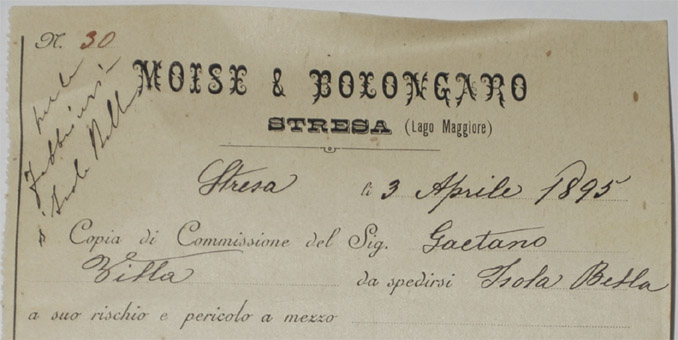 N. 30
per la
Isola Bella
MOISE & BOLONGARO
STRESA (Lago Maggiore)
Stresa li 3 Aprile 1895
Copia di Commissione del Sig. Gaetano
Villa da spedirsi Isola Bella
a suo rischio e pericolo a mezzo